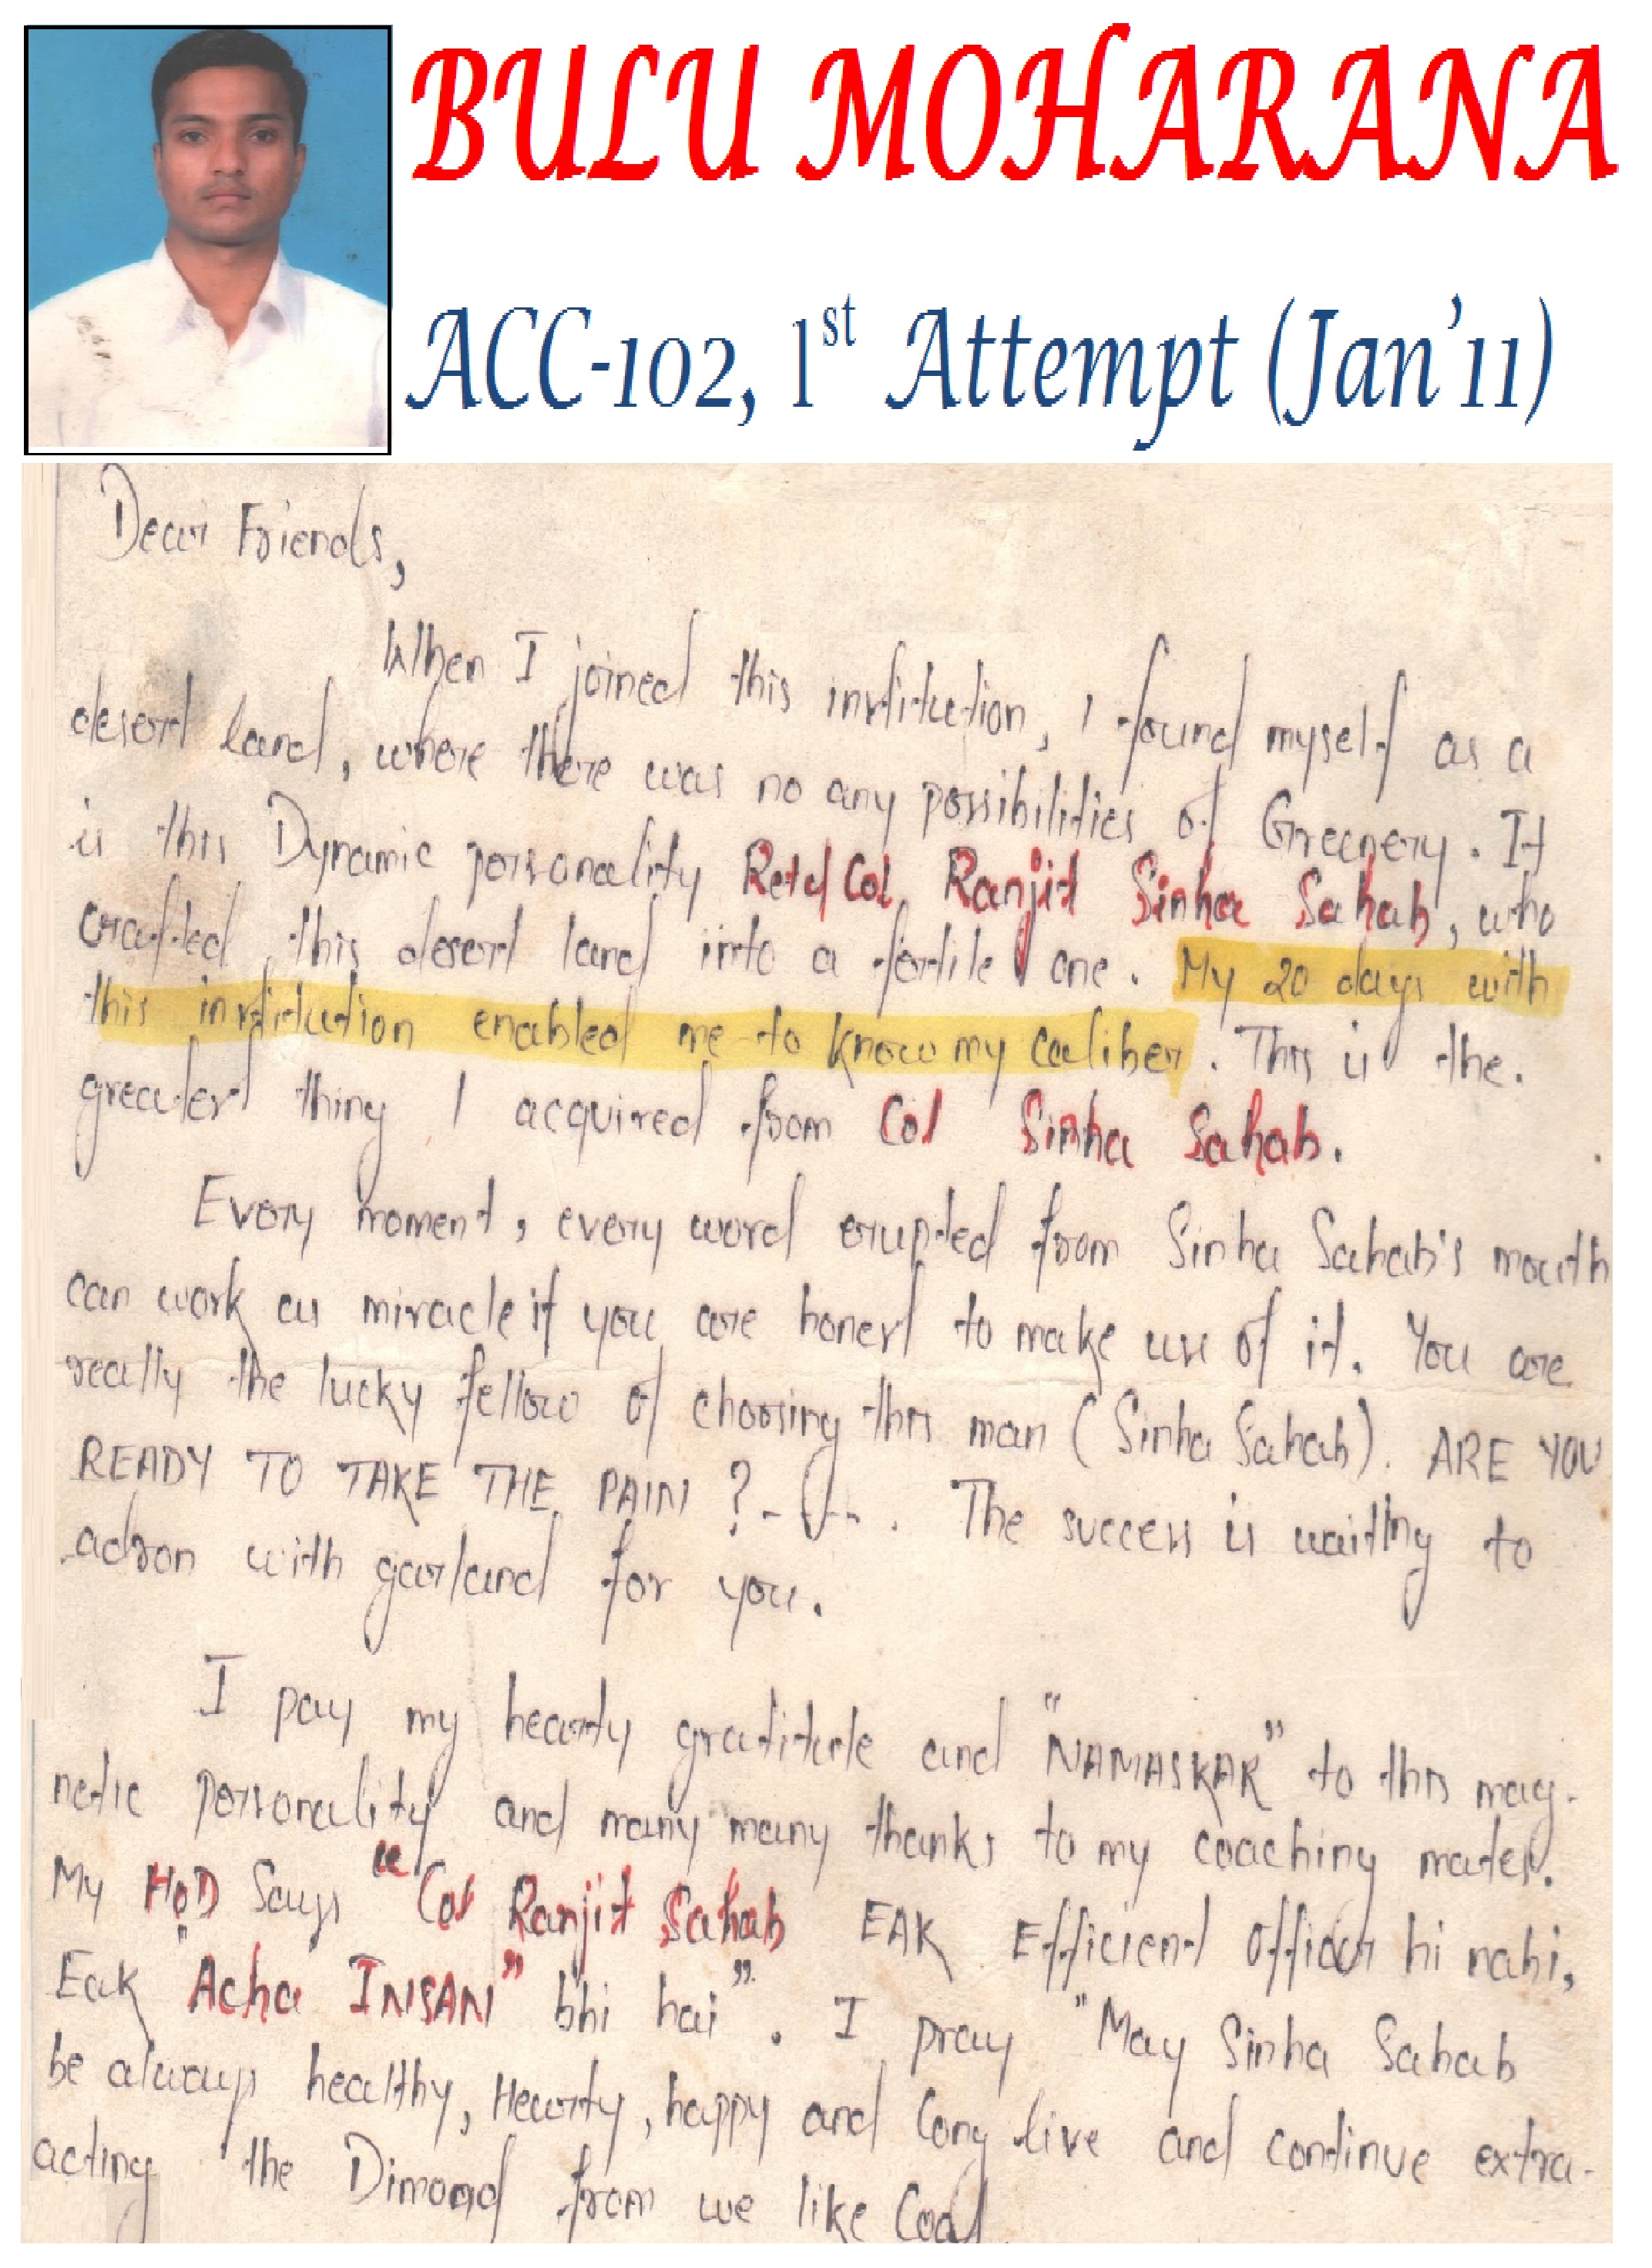 BULU MOHARANA
ACC-102, 1st Attempt (Jan'11)
Dear Friends,
When I joined this institution, I found myself as a
desert land, where there was no any possibilities of Greenery. It
is this Dynamic personality Retd Col Ranjit Sinha Sahab, who
crafted this desert land into a fertile one. My 20 days with
this institution enabled me to know my caliber. This is the.
greatest thing I acquired from Col Sinha Sahab.
Every moment, every word erupted from Sinha Sahab's mouth
can work as miracle if you are honest to make use of it. You are
really the lucky fellow of choosing this man (Sinha Sahab). ARE YOU
READY TO TAKE THE PAIN ? The success is waiting to
adron with garland for you.
I pay my hearty gratitude and "NAMASKAR" to this mag-
netic personality and many many thanks to my coaching mates.
My HOD Says "Col Ranjit Sahab EAK Efficient officer hi nahi,
Eak "Acha INSAN" bhi hai". I pray "May Sinha Sahab
be always healthy, Hearty, happy and long live and continue extra-
acting the Dimond from we like Coal